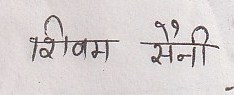 शिवम सैनी